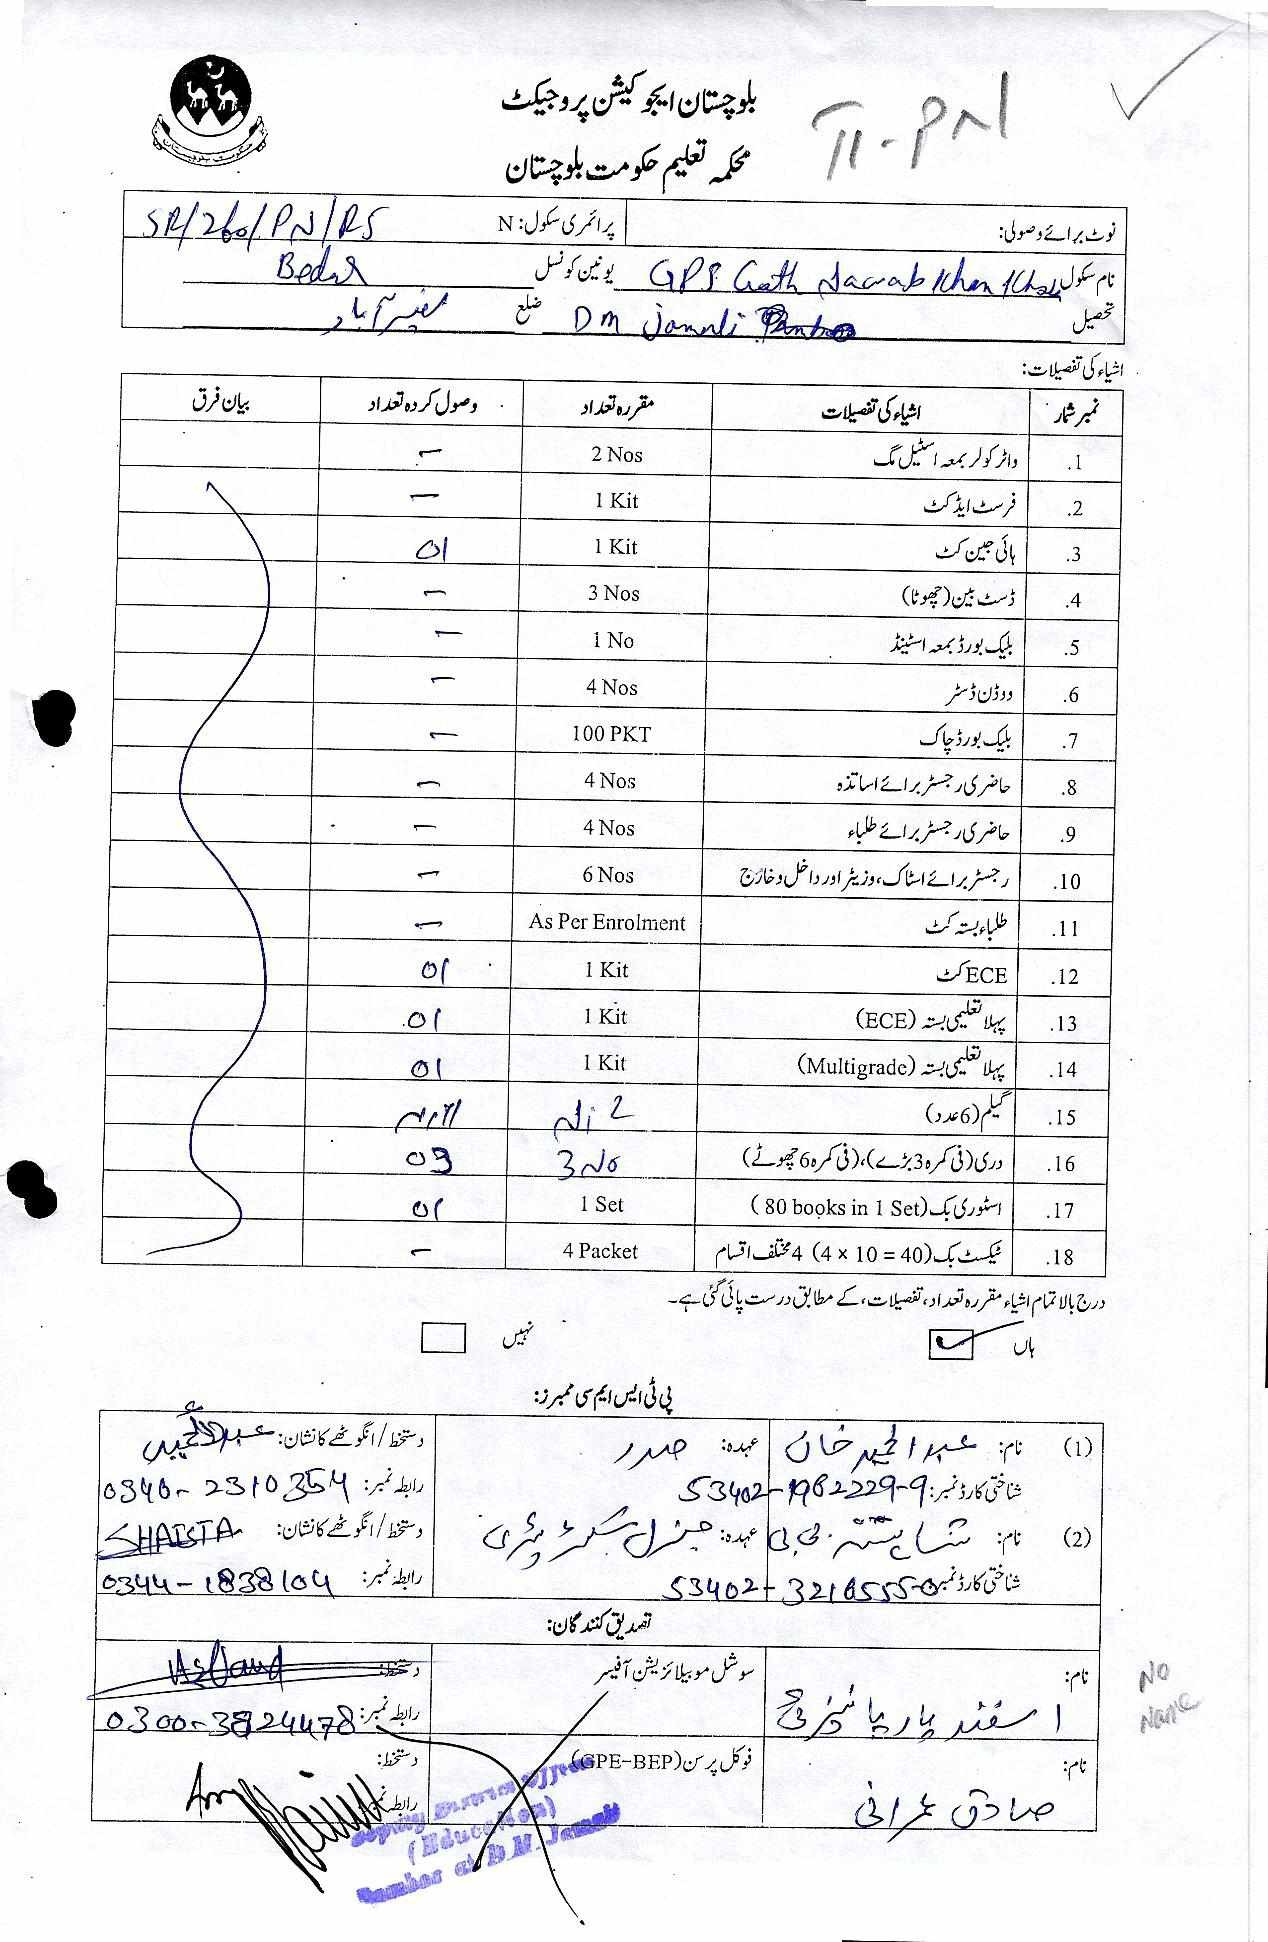 بلوچستان ایجوکیشن پروجیکٹ
II-PN
محکمہ تعلیم حکومت بلوچستان
نوٹ برائے وصولی: پرائمری سکول: N SR/260/PN/RS
نام سکول GPS Goth Nawab Khan یونین کونسل Bedar
تحصیل DM Jamali ضلع نصیر آباد
اشیاء کی تفصیلات:
نمبر شمار اشیاء کی تفصیلات مقررہ تعداد وصول کردہ تعداد بیان فرق
1. واٹر کولر بمعہ اسٹیل مگ 2 Nos –
2. فرسٹ ایڈ کٹ 1 Kit –
3. ہائی جین کٹ 1 Kit 01
4. ڈسٹ بین (چھوٹا) 3 Nos –
5. بلیک بورڈ بمعہ اسٹینڈ 1 No –
6. ووڈن ڈسٹر 4 Nos –
7. بلیک بورڈ چاک 100 PKT –
8. حاضری رجسٹر برائے اساتذہ 4 Nos –
9. حاضری رجسٹر برائے طلباء 4 Nos –
10. رجسٹر برائے اسٹاک، وزیٹر اور داخل و خارج 6 Nos –
11. طلباء بستہ کٹ As Per Enrolment –
12. ECE کٹ 1 Kit 01
13. پہلا تعلیمی بستہ (ECE) 1 Kit 01
14. پہلا تعلیمی بستہ (Multigrade) 1 Kit 01
15. گیلم (6 عدد)
16. دری (فی کمرہ 3 بڑے)، (فی کمرہ 6 چھوٹے) 3 No 03
17. اسٹوری بک (80 books in 1 Set) 1 Set 01
18. ٹیکسٹ بک (4 × 10 = 40) 4 مختلف اقسام 4 Packet –
درج بالا تمام اشیاء مقررہ تعداد، تفصیلات، کے مطابق درست پائی گئی ہے۔
ہاں نہیں
پی ٹی ایس ایم سی ممبرز:
(1) نام: عبدالحمید خان عہدہ: صدر دستخط / انگوٹھے کا نشان:
شناختی کارڈ نمبر: 53402-1982229-9 رابطہ نمبر: 0340-2310354
(2) نام: شائستہ بی بی عہدہ: جنرل سیکرٹری دستخط / انگوٹھے کا نشان: SHAISTA
شناختی کارڈ نمبر 53402-3216555-0 رابطہ نمبر: 0344-1838104
تصدیق کنندگان:
نام: اسفند یار سوشل موبیلائزیشن آفیسر دستخط:
رابطہ نمبر: 0300-3824478
No Name
نام: صادق عمرانی فوکل پرسن (GPE-BEP) دستخط:
رابطہ نمبر
Deputy District Officer
(Education)
Tamboo at D.M. Jamali